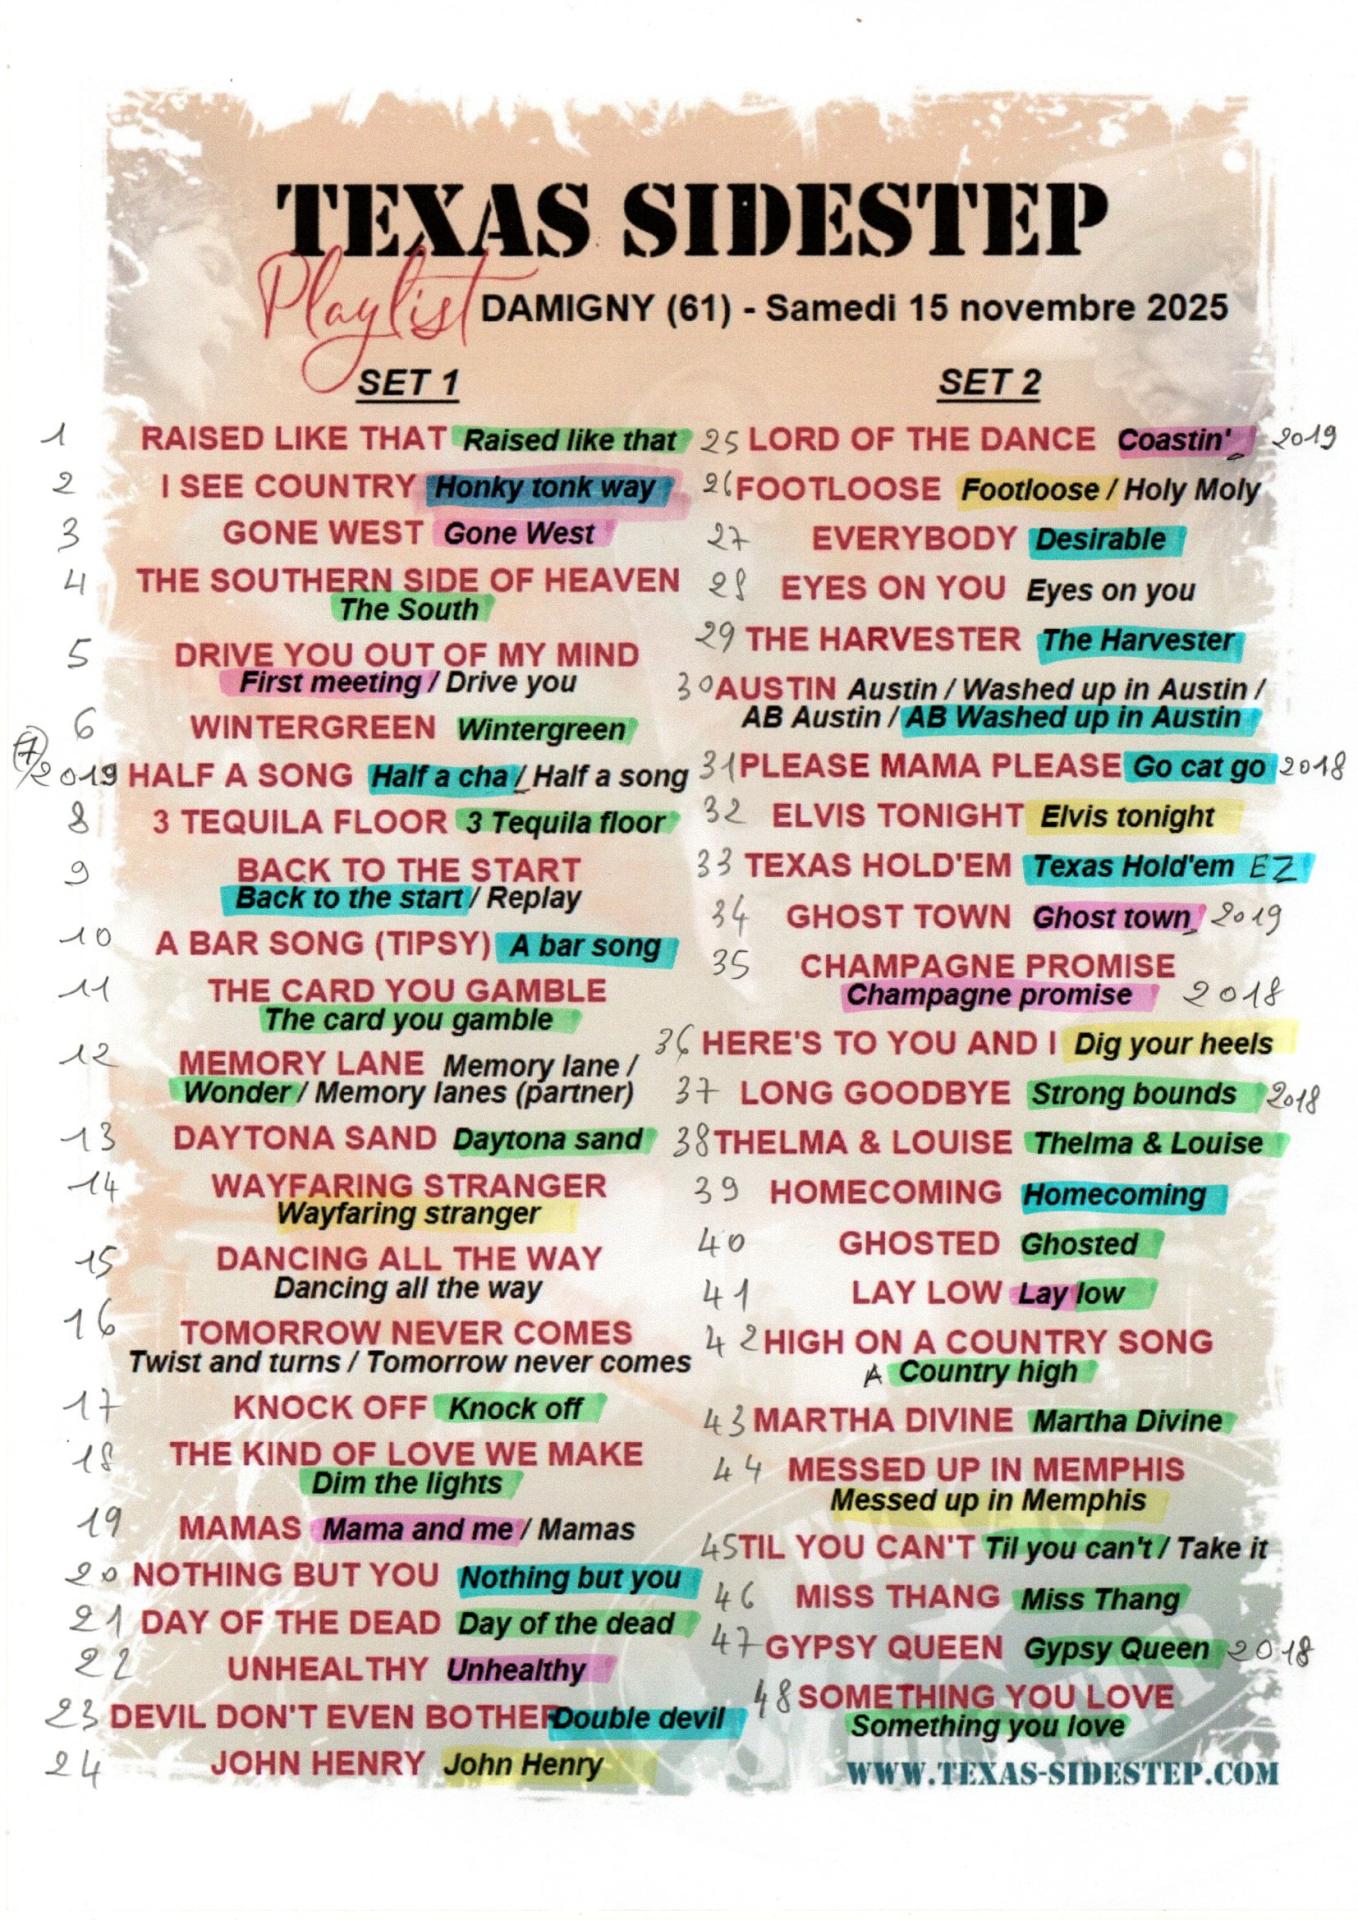 TEXAS SIDESTEP
Playlist DAMIGNY (61) - Samedi 15 novembre 2025
SET 1
1 RAISED LIKE THAT Raised like that
2 I SEE COUNTRY Honky tonk way
3 GONE WEST Gone West
4 THE SOUTHERN SIDE OF HEAVEN
The South
5 DRIVE YOU OUT OF MY MIND
First meeting / Drive you
6 WINTERGREEN Wintergreen
7 2019 HALF A SONG Half a cha / Half a song
8 3 TEQUILA FLOOR 3 Tequila floor
9 BACK TO THE START
Back to the start / Replay
10 A BAR SONG (TIPSY) A bar song
11 THE CARD YOU GAMBLE
The card you gamble
12 MEMORY LANE Memory lane /
Wonder / Memory lanes (partner)
13 DAYTONA SAND Daytona sand
14 WAYFARING STRANGER
Wayfaring stranger
15 DANCING ALL THE WAY
Dancing all the way
16 TOMORROW NEVER COMES
Twist and turns / Tomorrow never comes
17 KNOCK OFF Knock off
18 THE KIND OF LOVE WE MAKE
Dim the lights
19 MAMAS Mama and me / Mamas
20 NOTHING BUT YOU Nothing but you
21 DAY OF THE DEAD Day of the dead
22 UNHEALTHY Unhealthy
23 DEVIL DON'T EVEN BOTHER Double devil
24 JOHN HENRY John Henry
SET 2
25 LORD OF THE DANCE Coastin' 2019
26 FOOTLOOSE Footloose / Holy Moly
27 EVERYBODY Desirable
28 EYES ON YOU Eyes on you
29 THE HARVESTER The Harvester
30 AUSTIN Austin / Washed up in Austin /
AB Austin / AB Washed up in Austin
31 PLEASE MAMA PLEASE Go cat go 2018
32 ELVIS TONIGHT Elvis tonight
33 TEXAS HOLD'EM Texas Hold'em EZ
34 GHOST TOWN Ghost town 2019
35 CHAMPAGNE PROMISE
Champagne promise 2018
36 HERE'S TO YOU AND I Dig your heels
37 LONG GOODBYE Strong bounds 2018
38 THELMA & LOUISE Thelma & Louise
39 HOMECOMING Homecoming
40 GHOSTED Ghosted
41 LAY LOW Lay low
42 HIGH ON A COUNTRY SONG
A Country high
43 MARTHA DIVINE Martha Divine
44 MESSED UP IN MEMPHIS
Messed up in Memphis
45 TIL YOU CAN'T Til you can't / Take it
46 MISS THANG Miss Thang
47 GYPSY QUEEN Gypsy Queen 2018
48 SOMETHING YOU LOVE
Something you love
WWW.TEXAS-SIDESTEP.COM